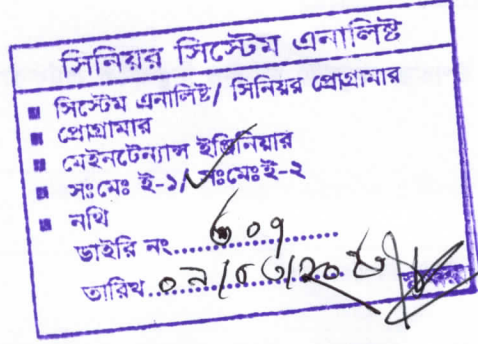 সিনিয়র সিস্টেম এনালিষ্ট
সিস্টেম এনালিষ্ট/ সিনিয়র প্রোগ্রামার
প্রোগ্রামার
মেইনটেন্যান্স ইঞ্জিনিয়ার
সঃমেঃ ই-১/সঃমেঃই-২
নথি
ডাইরি নং..................
তারিখ..................